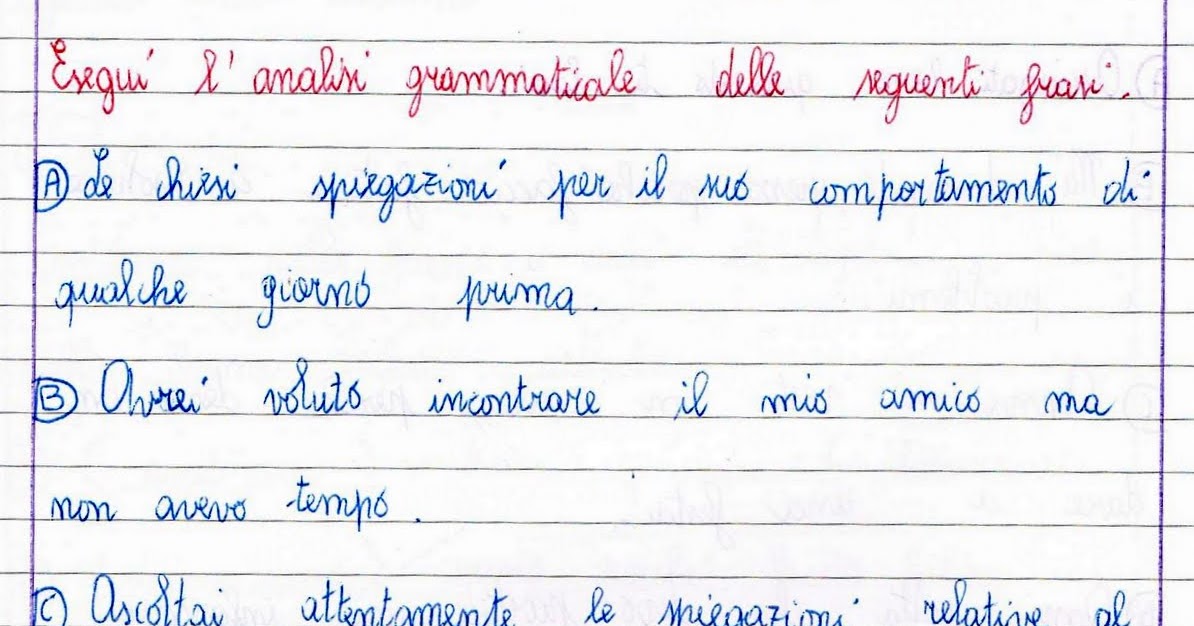 Esegui l'analisi grammaticale delle seguenti frasi.
A) Le chiesi spiegazioni per il suo comportamento di
qualche giorno prima.
B) Avrei voluto incontrare il mio amico ma
non avevo tempo.
C) Ascoltai attentamente le spiegazioni relative al